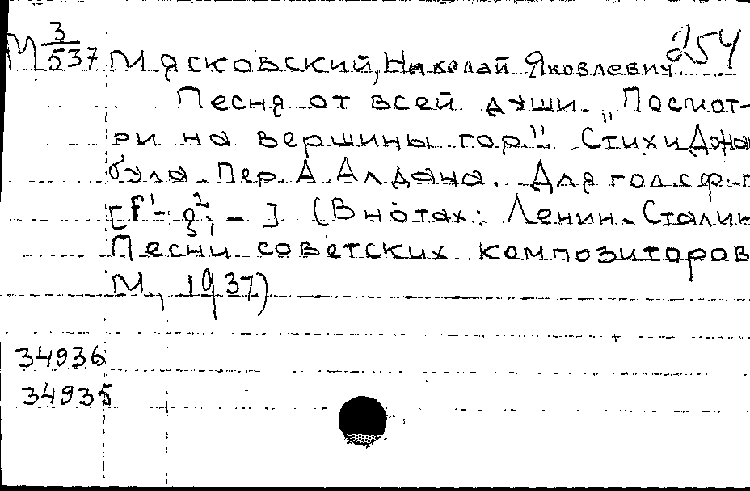 М 3/537 Мясковский, Николай Яковлевич. 254
Песня от всей души. "Посмот-
ри на вершины гор". Стихи Джам
була. Пер. А. Алдана. Для гол. с ф-п
[f¹- g²; - ] (В нотах: Ленин. Сталин
Песни советских композиторов
М., 1937)
34936
34935